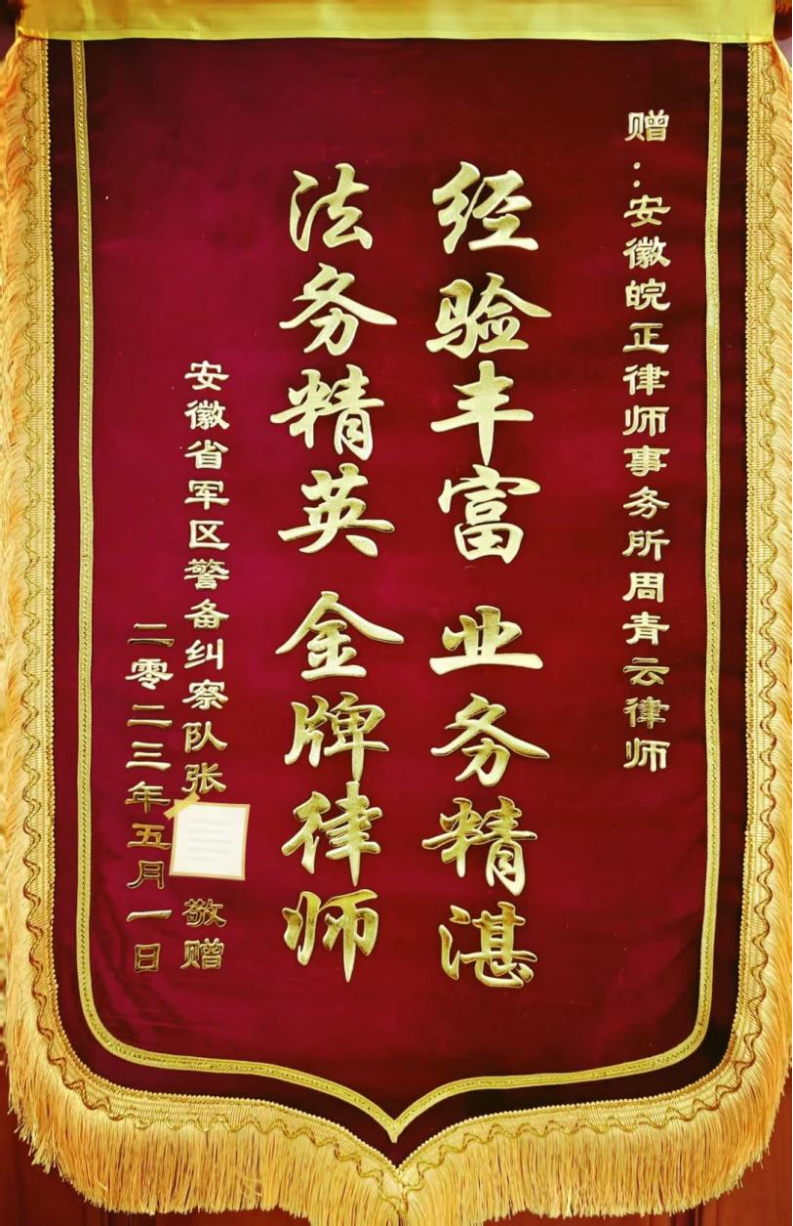 赠:安徽皖正律师事务所周青云律师
经验丰富 业务精湛
法务精英 金牌律师
安徽省军区警备纠察队张 敬赠
二零二三年五月一日